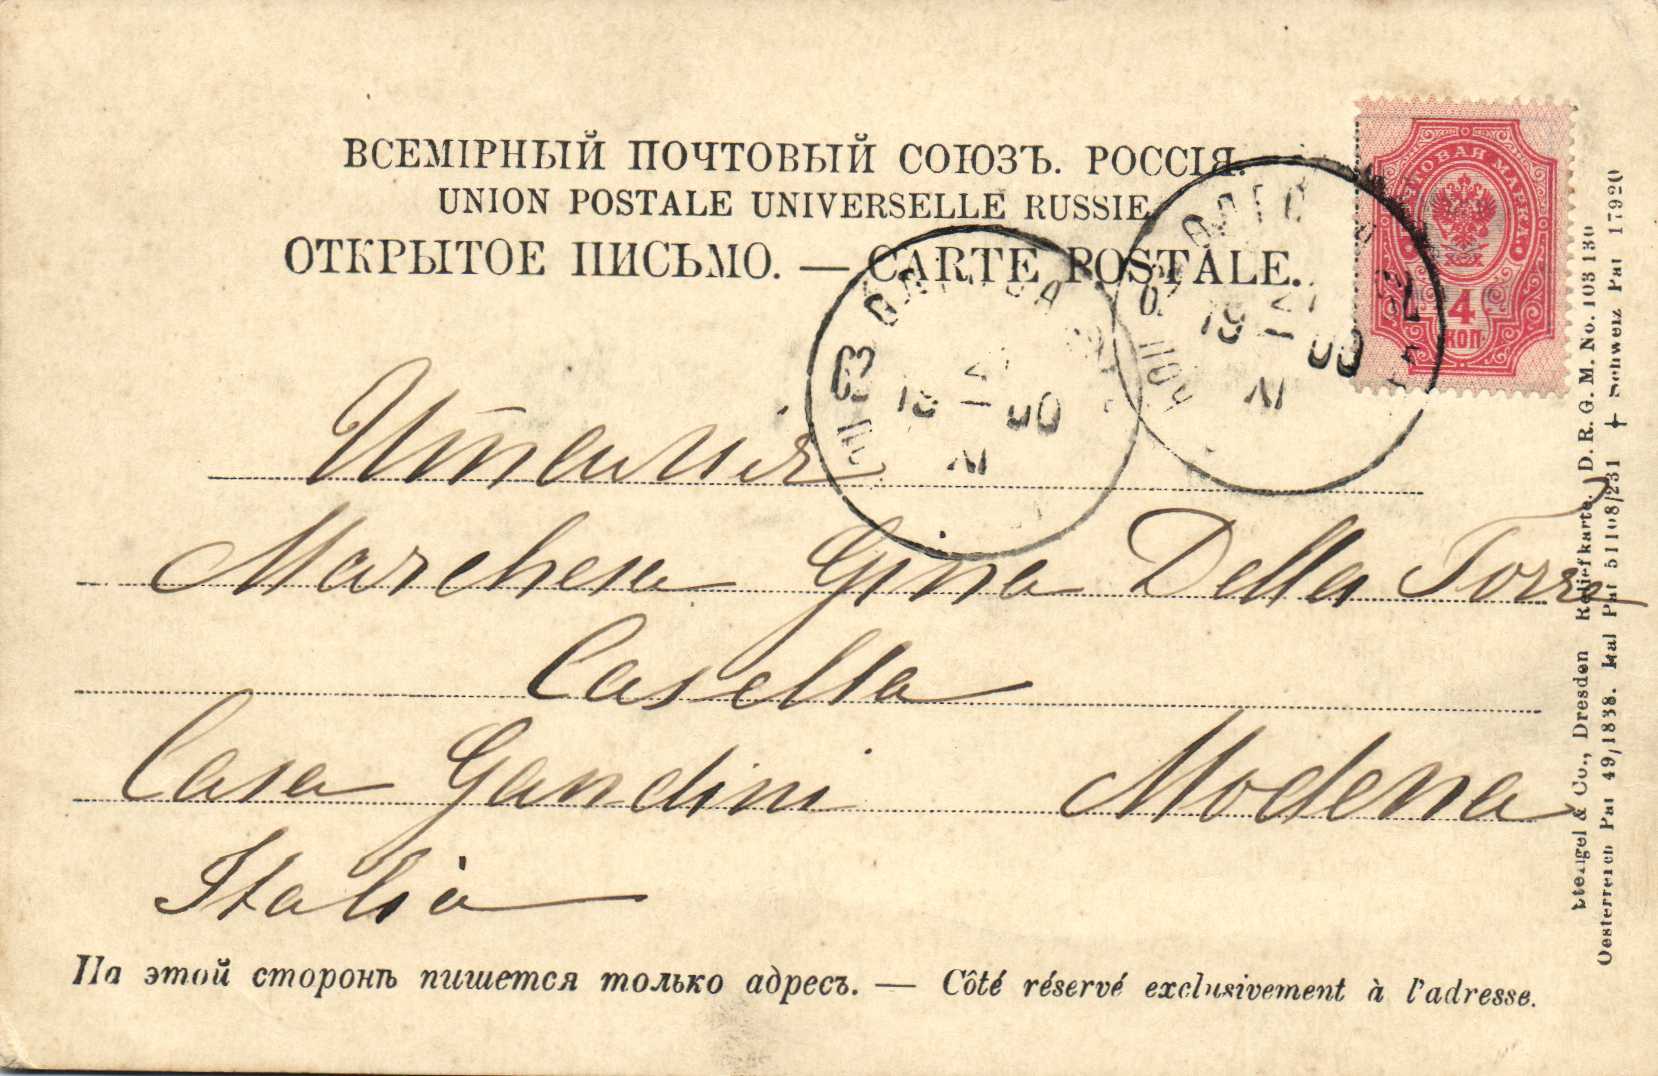 ВСЕМІРНЫЙ ПОЧТОВЫЙ СОЮЗЪ. РОССІЯ.
UNION POSTALE UNIVERSELLE RUSSIE
ОТКРЫТОЕ ПИСЬМО. — CARTE POSTALE.
ПОЧТОВАЯ МАРКА
4
КОП.
19 00
XI
19 00
XI
Италия
Marchesa Gina Della Torre
Casella
Casa Gandini Modena
Italia
На этой сторонѣ пишется только адресъ. — Côté réservé exclusivement à l'adresse.
Stengel & Co., Dresden Reliefkarte. D. R. G. M. No. 103 130
Oesterreich Pat 49/1838. Ital Pat 51108/231 ✝ Schweiz Pat 17920